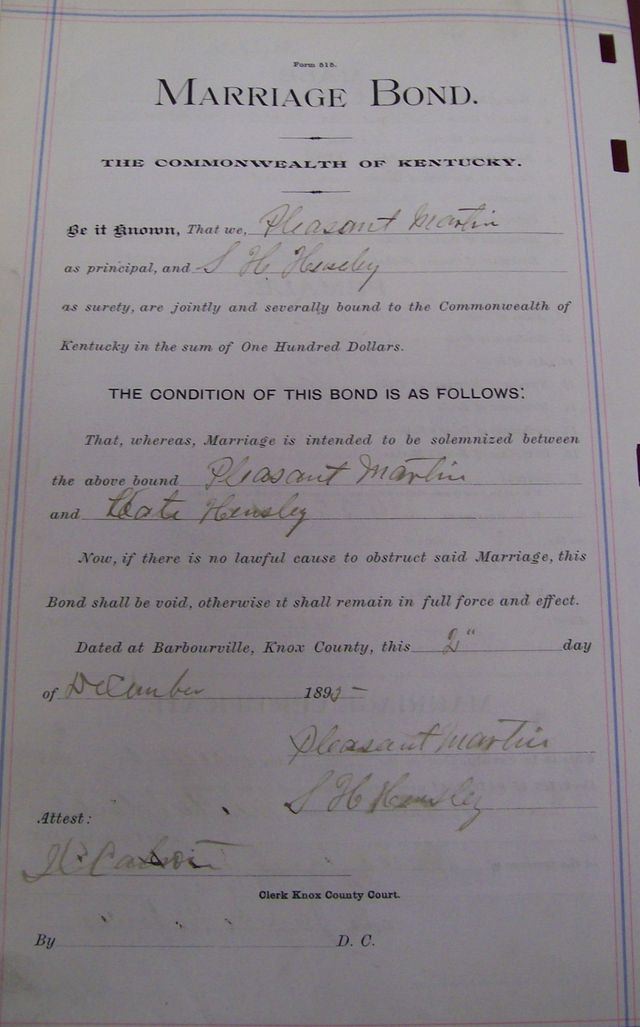 Form 515.
MARRIAGE BOND.
THE COMMONWEALTH OF KENTUCKY.
Be it Known, That we, Pleasant Martin
as principal, and S H Hensley
as surety, are jointly and severally bound to the Commonwealth of
Kentucky in the sum of One Hundred Dollars.
THE CONDITION OF THIS BOND IS AS FOLLOWS:
That, whereas, Marriage is intended to be solemnized between
the above bound Pleasant Martin
and Kate Hensley
Now, if there is no lawful cause to obstruct said Marriage, this
Bond shall be void, otherwise it shall remain in full force and effect.
Dated at Barbourville, Knox County, this 2" day
of December 1895
Pleasant Martin
S H Hensley
Attest:
Clerk Knox County Court.
By D. C.